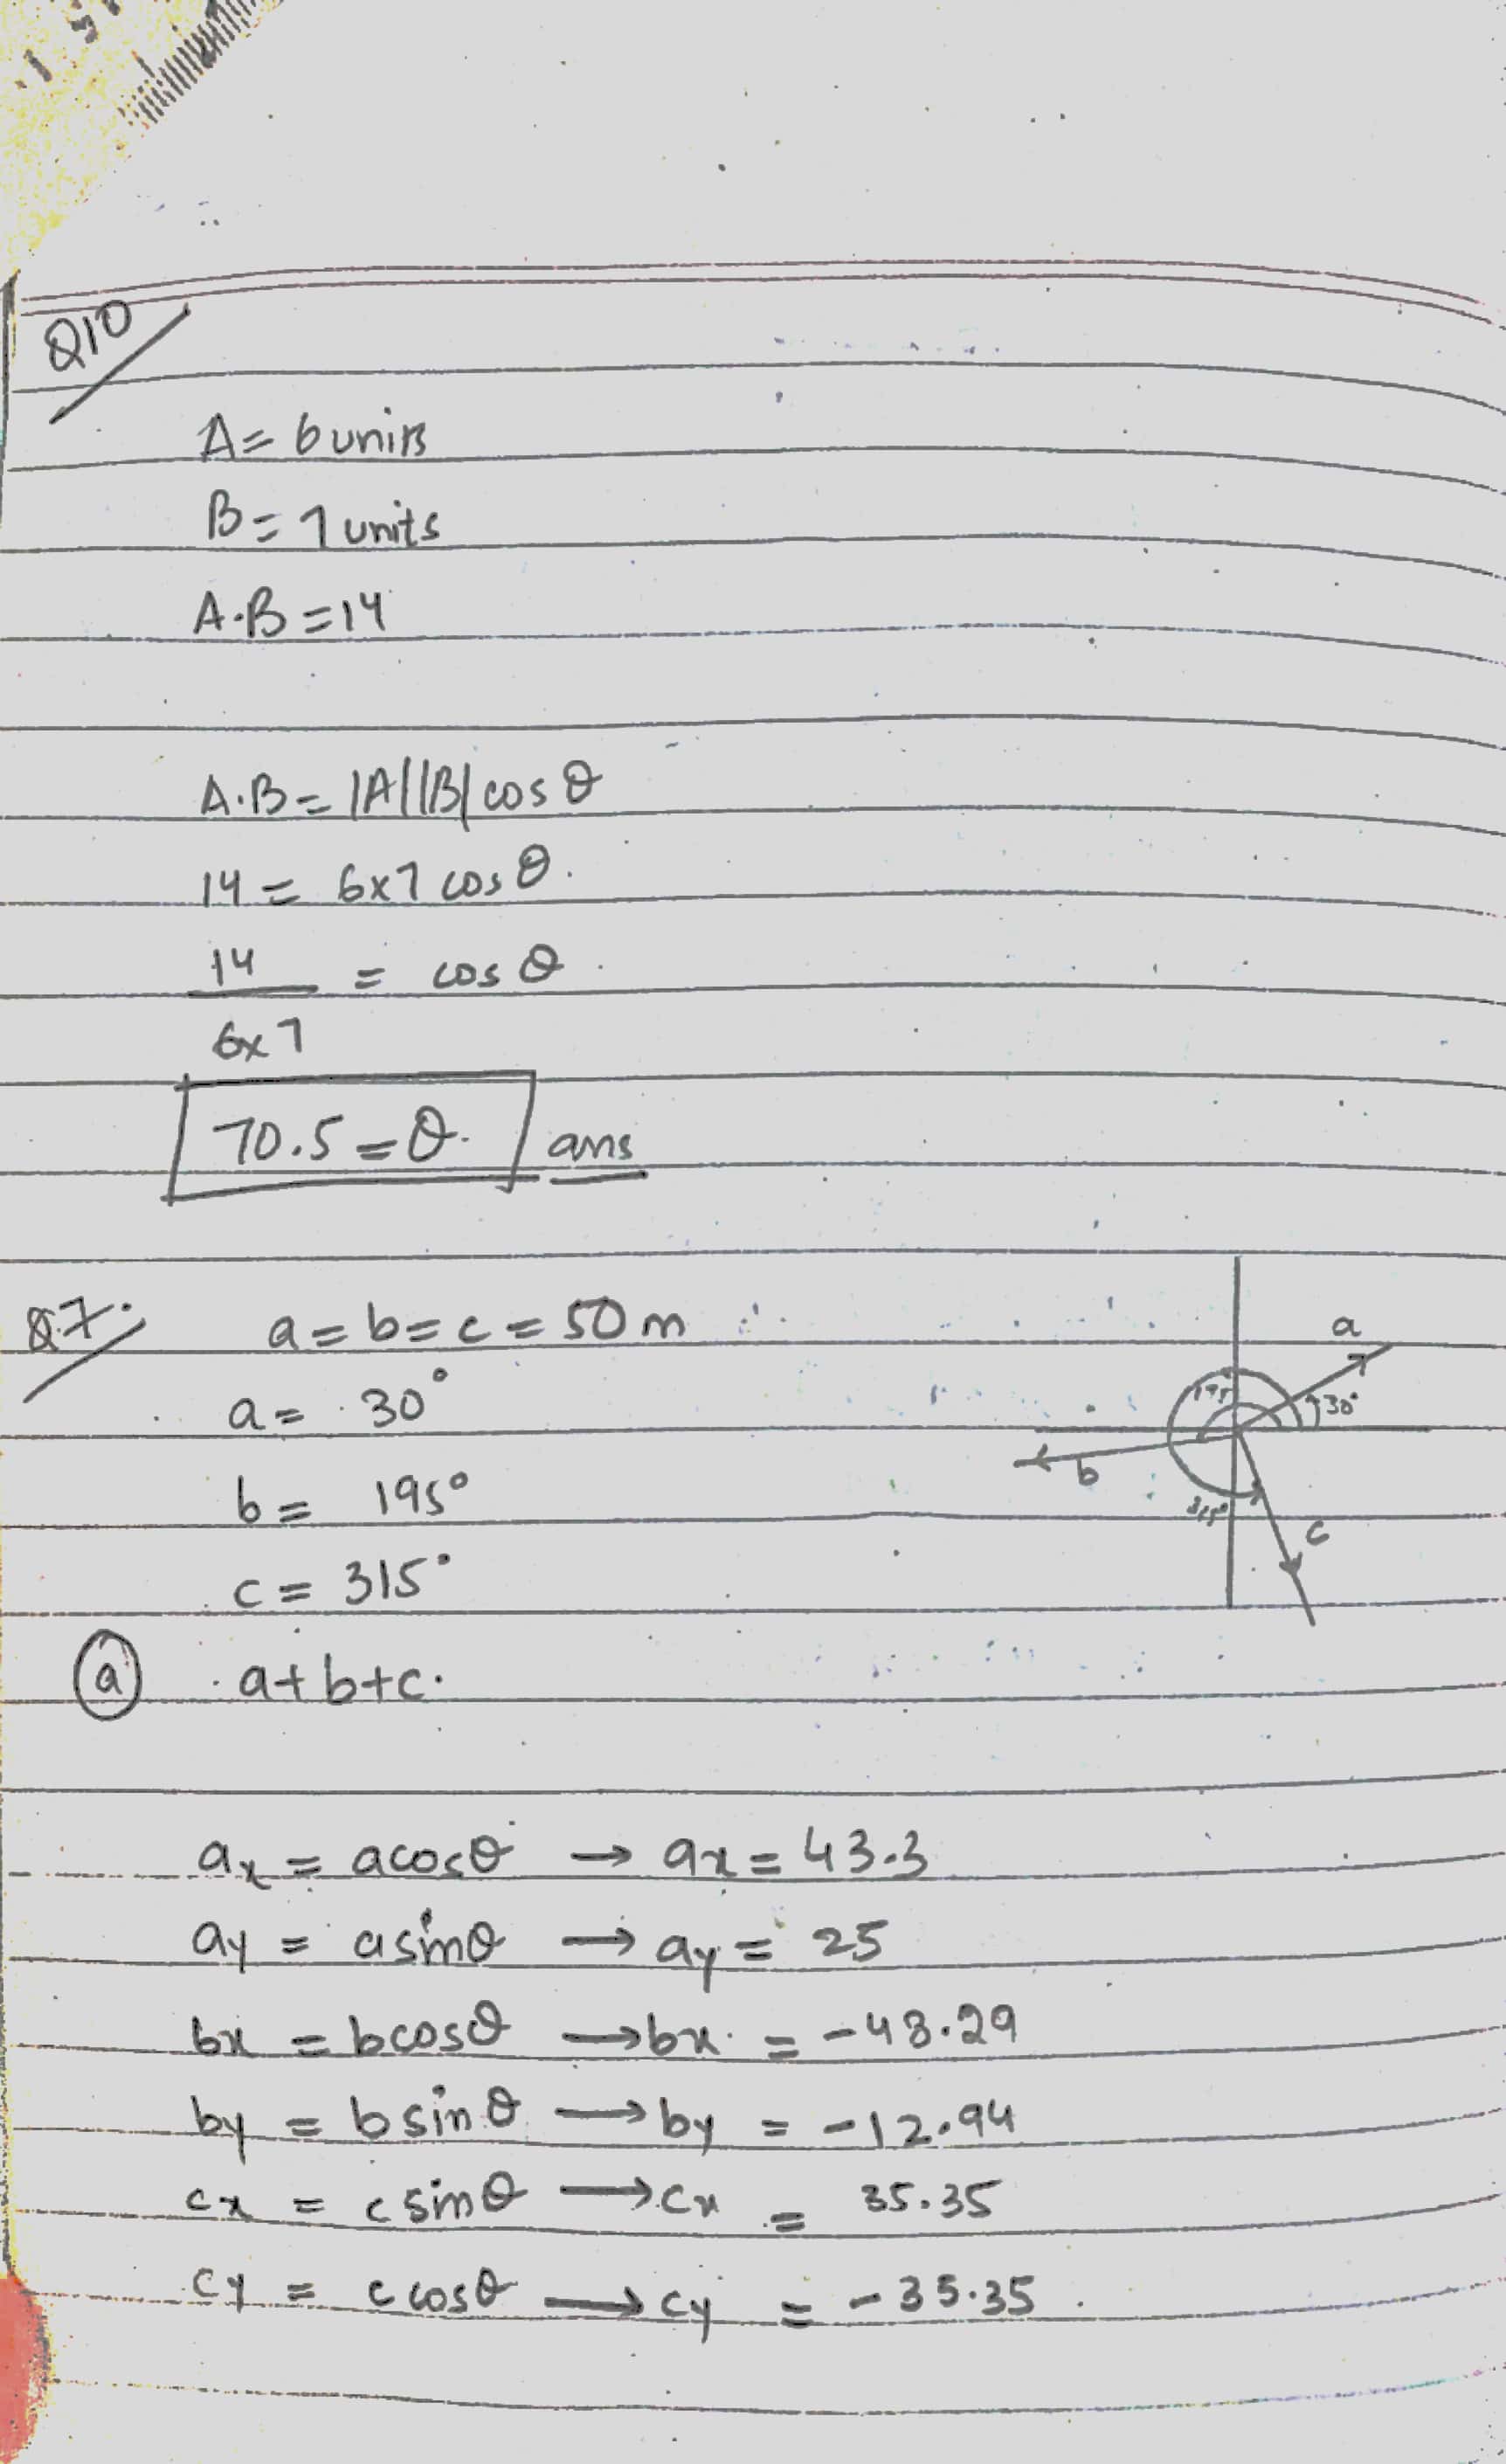 Q10
A= 6 units
B= 7 units
A.B = 14
A.B = |A||B| cos θ
14 = 6x7 cos θ.
14 = cos θ
6x7
70.5 = θ. ans
Q.7. a = b = c = 50 m
a = 30°
b = 195°
c = 315°
a
195
30°
b
315°
c
(a) a+b+c.
ax = acosθ → ax = 43.3
ay = asinθ → ay = 25
bx = bcosθ → bx = -48.29
by = bsinθ → by = -12.94
cx = csinθ → cx = 35.35
cy = ccosθ → cy = -35.35